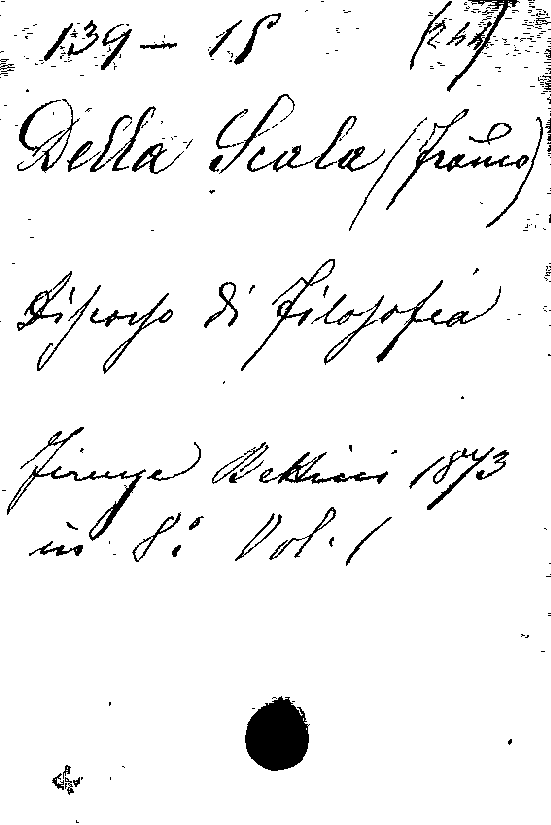 139 - 18 (244)
Della Scala (Franco)
Discorso di filosofia
Firenze Bettini 1873
in 8° Vol. 1